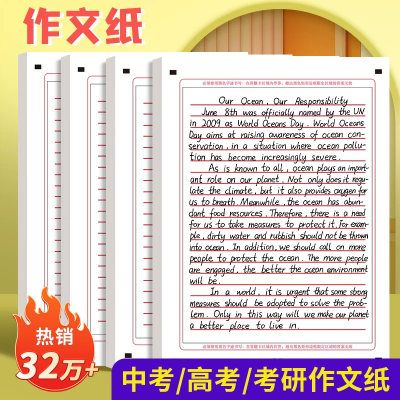 作文纸
Our Ocean, Our Responsibility
June 8th was officially named by the UN
in 2009 as World Oceans Day. World Oceans
Day aims at raising awareness of ocean con-
servation, in a situation where ocean pollu-
tion has become increasingly severe.
As is known to all, ocean plays an import-
ant role on our planet. Not only does it regu-
late the climate, but it also provides oxygen for
us to breath. Meanwhile, the ocean has abun-
dant food resources. Therefore, there is a need
for us to take measures to protect it. For exam-
ple, dirty water and rubbish should not be thrown
into ocean. In addition, we should call on more
people to protect the ocean. The more people
are engaged, the better the ocean environment
will be.
In a world, it is urgent that some strong
measures should be adopted to solve the prob-
lem. Only in this way will we make our planet
a better place to live in.
热销
32万+
中考/高考/考研作文纸